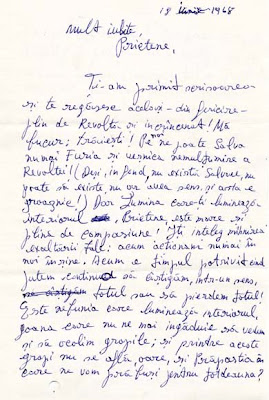 18 iunie 1968
mult iubite
Prietene,
Ți-am primit scrisoarea
și te regăsesc același - din fericire -
plin de Revoltă și încrâncenat! Mă
bucur; trăiești! Pe noi ne poate salva
numai Furia și veșnica nemulțumire a
Revoltei! (Deși, în fond, nu există Salvare, nu
poate să existe, nu ar avea sens, și asta e
groaznic!) Dar Lumina care-ți luminează
interiorul, Prietene, este mare și
plină de compasiune! Îți înțeleg mâhnirea
exaltării tale: acum acționăm numai în
noi înșine. Acum e timpul potrivit când
putem să câștigăm, într-un sens,
totul sau să pierdem totul!
Este nebunia care luminează interiorul,
goana care nu ne mai îngăduie să vedem
și să ocolim gropile; și printre aceste
gropi nu se află, oare, și Prăpastia în
care ne vom prăbuși pentru totdeauna?